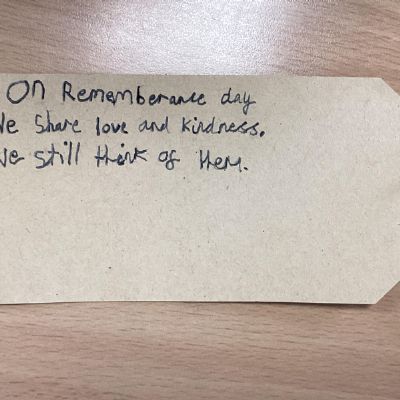 On Rememberance day
We share love and kindness.
We still think of them.